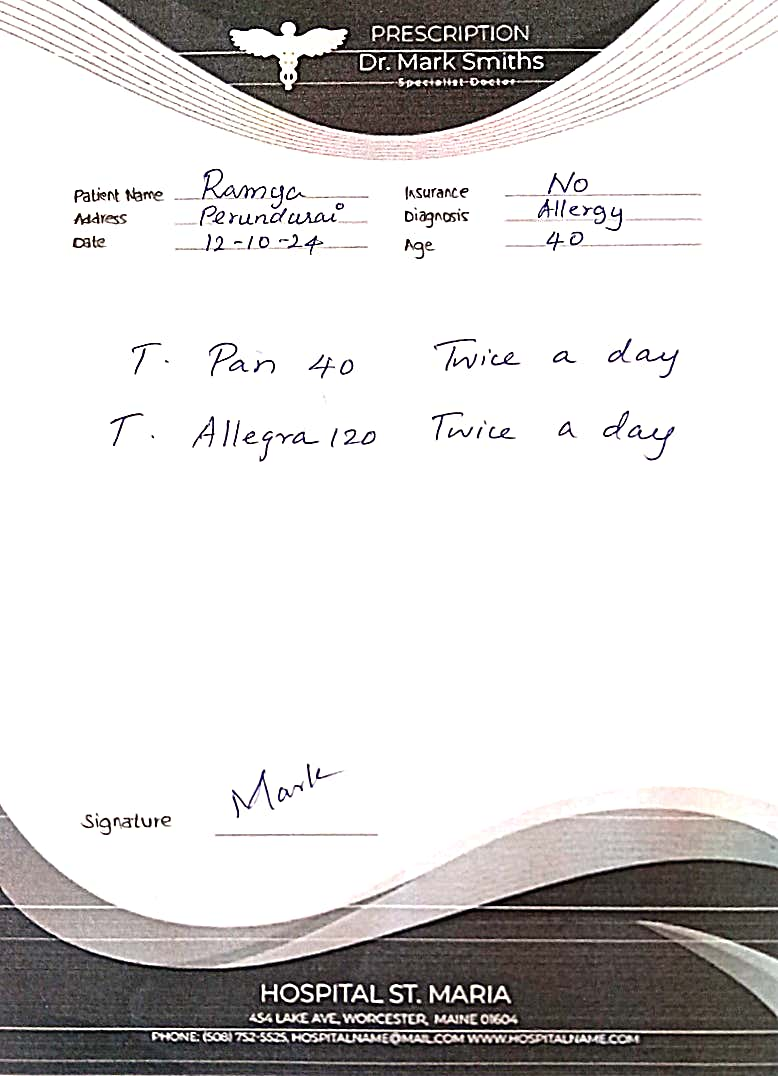 PRESCRIPTION
Dr. Mark Smiths
Specialist Doctor
Patient Name Ramya Insurance No
Address Perundurai Diagnosis Allergy
Date 12-10-24 Age 40
T. Pan 40 Twice a day
T. Allegra 120 Twice a day
Signature Mark
HOSPITAL ST. MARIA
454 LAKE AVE, WORCESTER, MAINE 01604
PHONE: (508) 752-5525, HOSPITALNAME@MAIL.COM WWW.HOSPITALNAME.COM